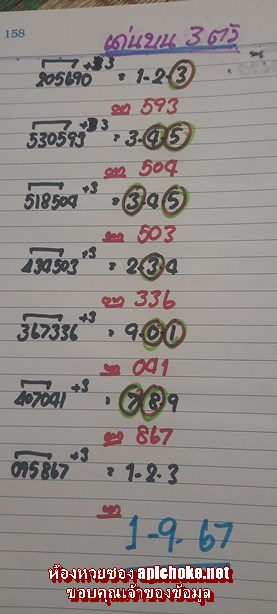 158
เด่นบน 3 ตัว
205690 +3 3 = 1-2-3
593
530593 +3 3 = 3-4-5
504
518504 +3 = 3-4-5
503
434503 +3 = 2-3-4
336
367336 +3 = 9-0-1
041
407041 +3 = 789
867
095867 +3 = 1-2-3
1-9-67
ห้องหวยซอง apichoke.net
ขอบคุณเจ้าของข้อมูล